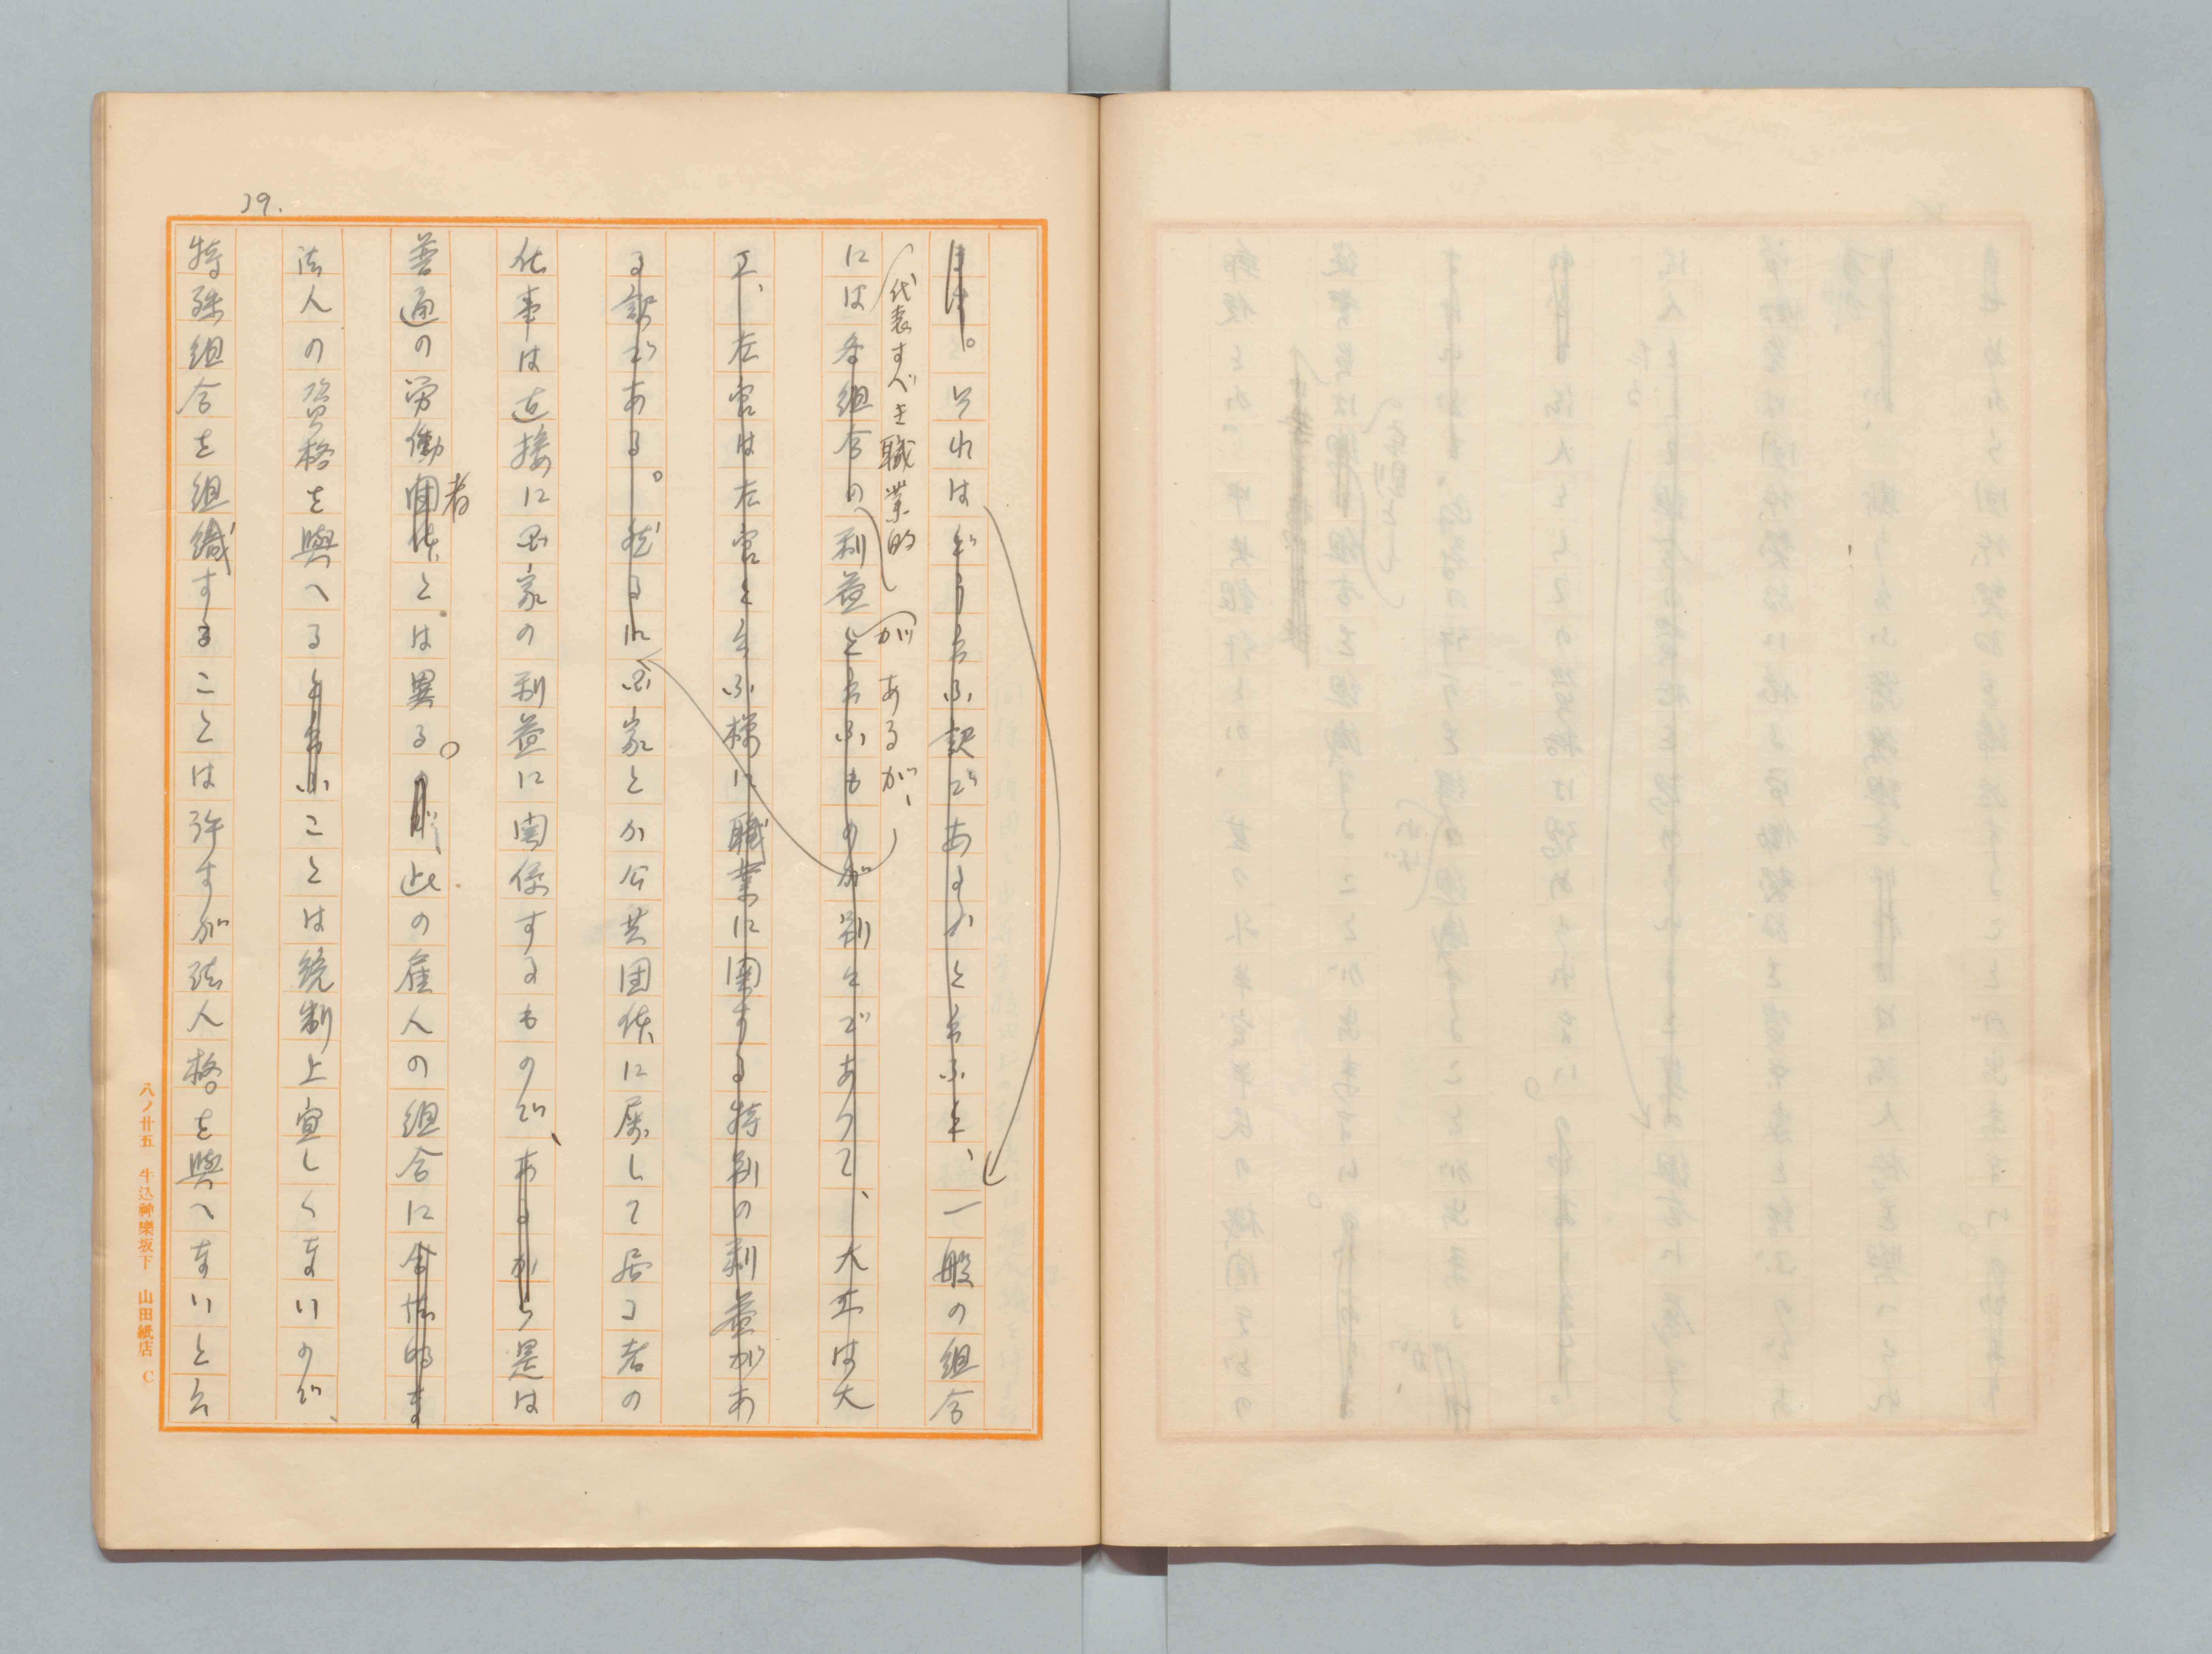 19.
それはどう云ふ訳であるかと云ふと、一般の組合
代表すべき職業的
があるが、
には各組合の利益と云ふものが別にであつて、大工は大
工、左官は左官と云ふ様に職業に関する特別の利益があ
る訳である。然るに国家とか公共団体に属して居る者の
仕事は直接に国家の利益に関係するもので、あるから是は
者
普通の労働団体とは異る。此の雇人の組合に
法人の資格を與へると云ふことは統制上宜しくないので、
特殊組合を組織することは許すが法人格を與へないと云
八ノ廿五 牛込神樂坂下 山田紙店 C